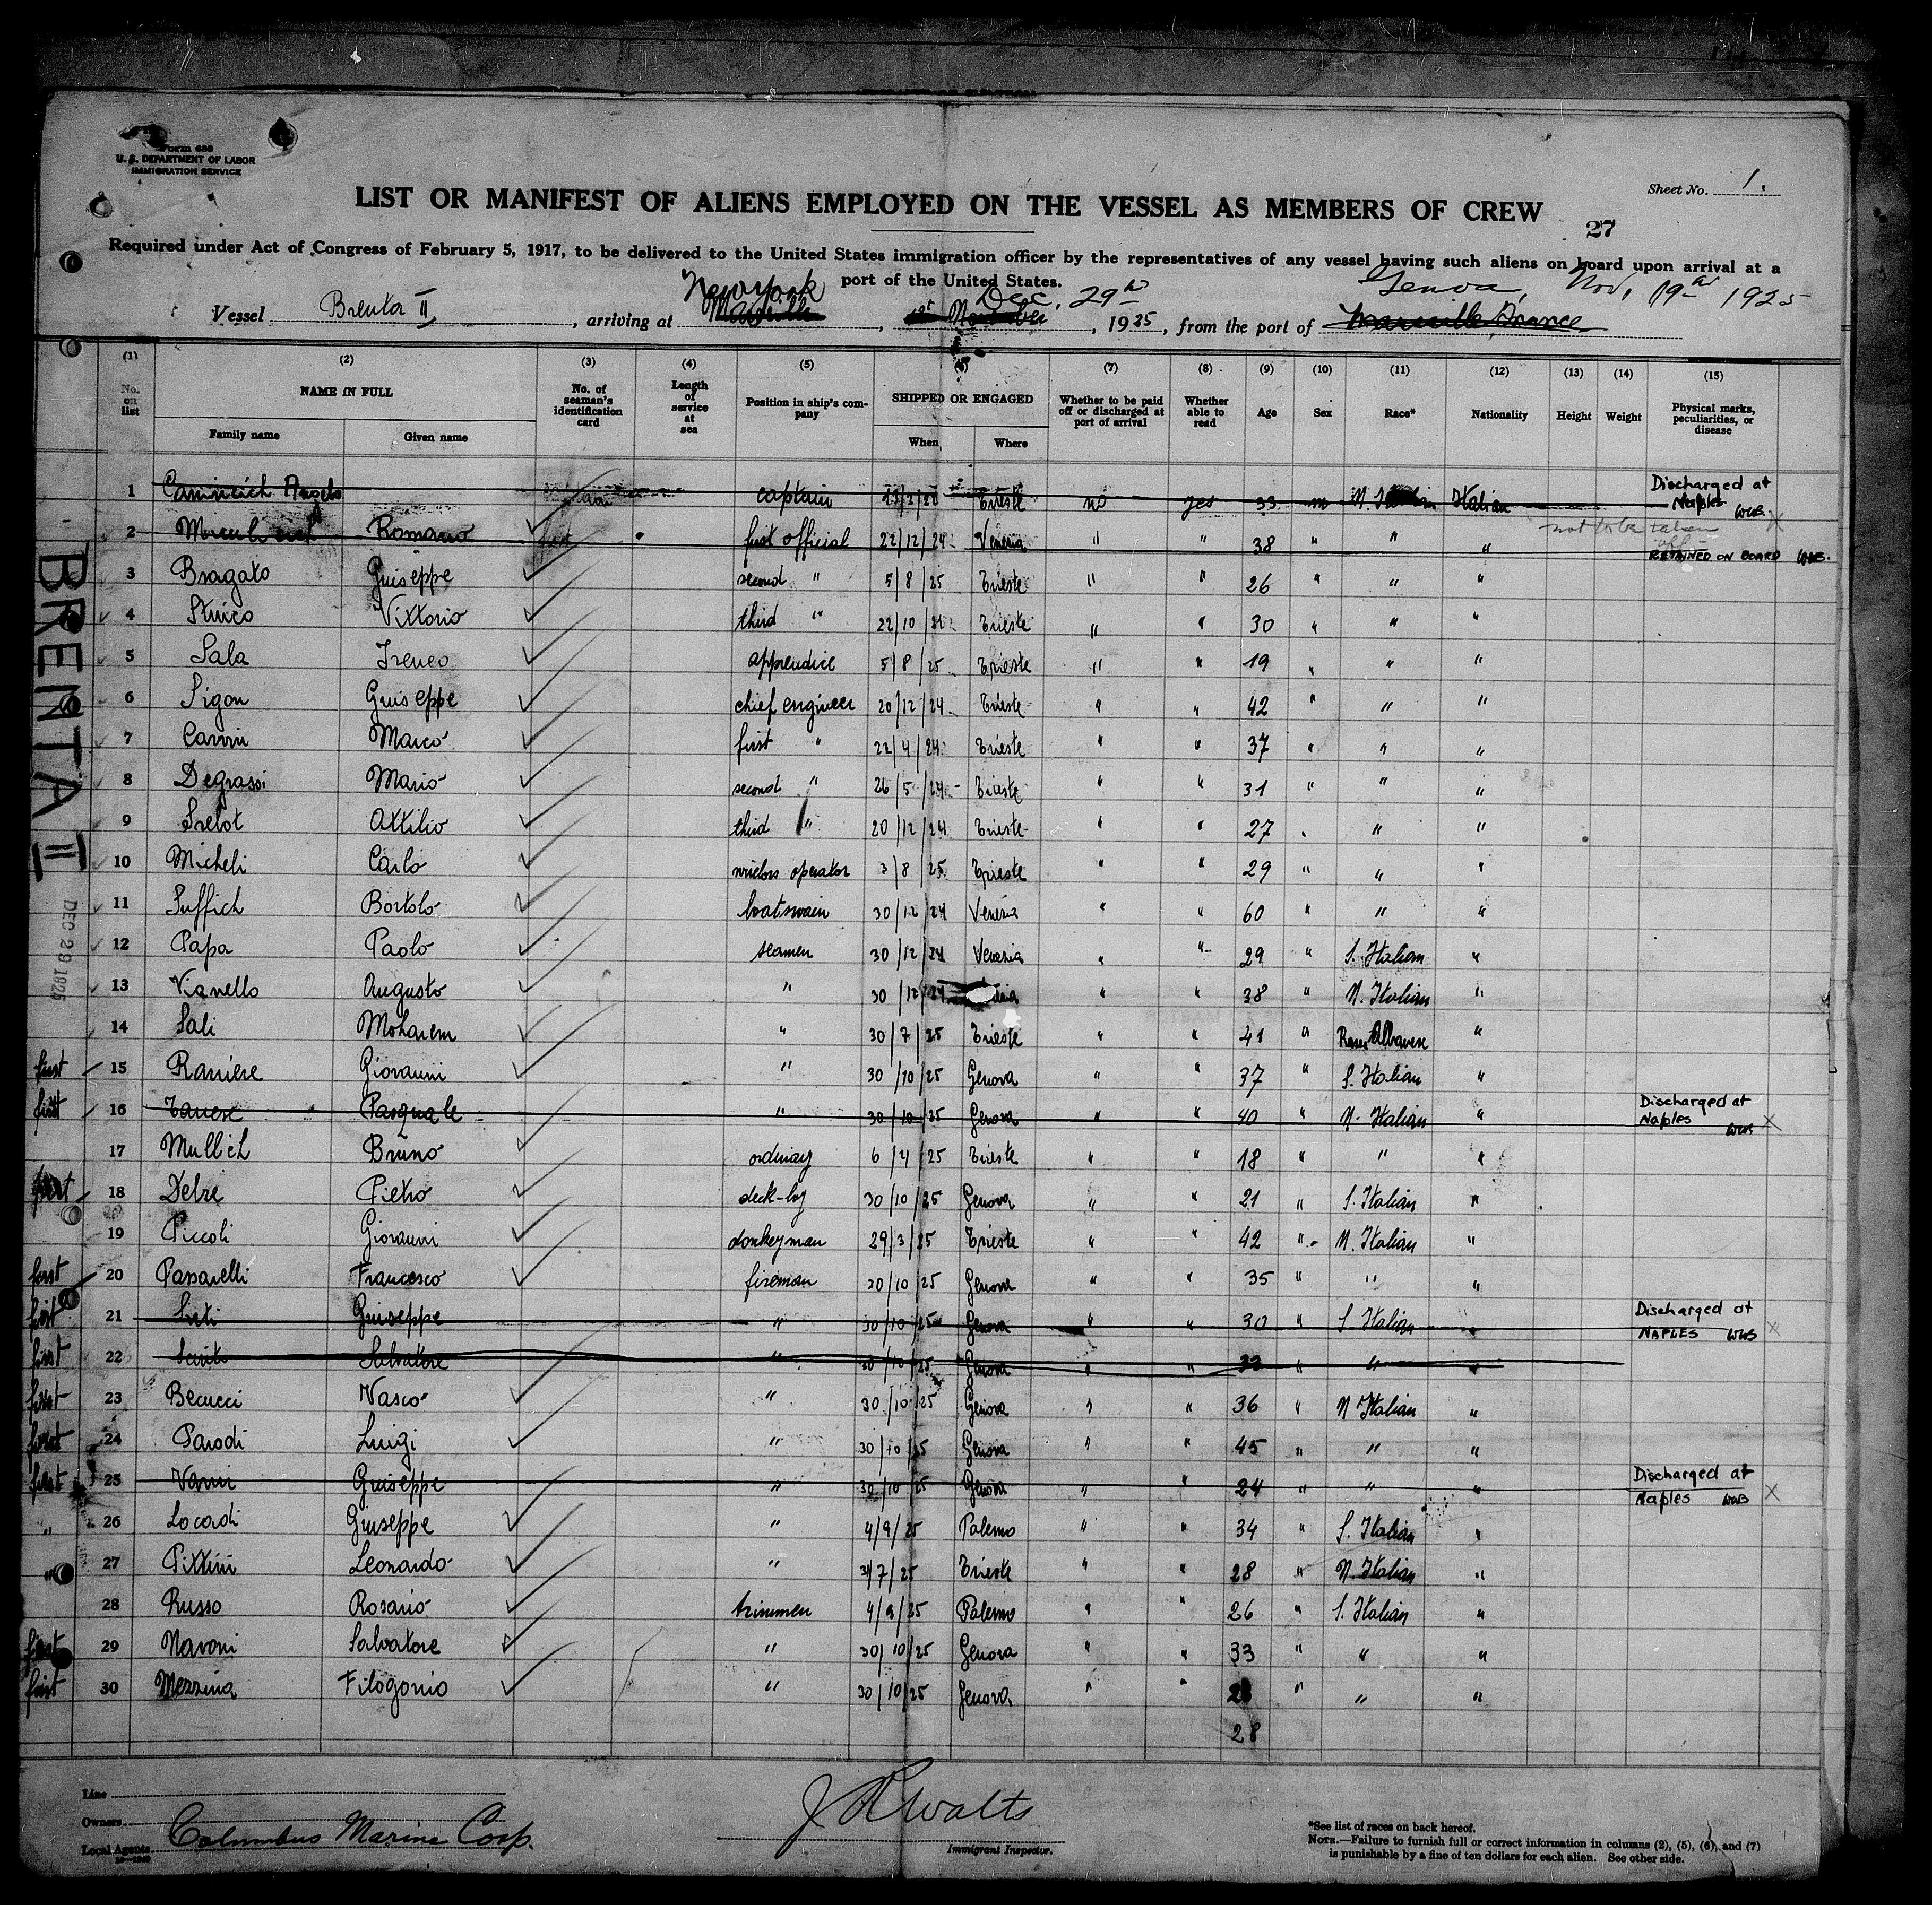 Form 680
U. S. DEPARTMENT OF LABOR
IMMIGRATION SERVICE
Sheet No. 1.
LIST OR MANIFEST OF ALIENS EMPLOYED ON THE VESSEL AS MEMBERS OF CREW
27
Required under Act of Congress of February 5, 1917, to be delivered to the United States immigration officer by the representatives of any vessel having such aliens on board upon arrival at a
port of the United States.
New York Dec. 29th Genova, Nov, 19th 1925
Vessel Brenta II, arriving at , 1925, from the port of
(1) (2) (3) (4) (5) (6) (7) (8) (9) (10) (11) (12) (13) (14) (15)
No. on list NAME IN FULL Family name Given name No. of seaman's identification card Length of service at sea Position in ship's company SHIPPED OR ENGAGED When Where Whether to be paid off or discharged at port of arrival Whether able to read Age Sex Race* Nationality Height Weight Physical marks, peculiarities, or disease
1 Angelo captain Trieste no yes 33 m N. Italian Discharged at Naples WWB X
2 Romano first official 22/12/24 Venezia " " 38 " " " not to be taken off RETAINED ON BOARD WWB.
3 Bragato Giuseppe second " 5/8/25 Trieste " " 26 " " "
4 Stuico Vittorio third " 22/10/24 Trieste " " 30 " " "
5 Sala Ireneo apprendice 5/8/25 Trieste " " 19 " " "
6 Sigon Giuseppe chief engineer 20/12/24 Trieste " " 42 " " "
7 Marco first " 22/4/24 Trieste " " 37 " " "
8 Degrassi Mario second " 26/5/24 Trieste " " 31 " " "
9 Srebot Attilio third " 20/12/24 Trieste " " 27 " " "
10 Micheli Carlo operator 3/8/25 Trieste " " 29 " " "
11 Suffich Bortolo boatswain 30/12/24 Venezia " " 60 " " "
12 Papa Paolo seamen 30/12/24 Venezia " " 29 " S. Italian "
13 Vianello Augusto " 30/12/24 " " 38 " N. Italian "
14 Sali Moharem " 30/7/25 Trieste " " 41 " Albanese "
first 15 Raniere Giovanni " 30/10/25 Genova " " 37 " S. Italian "
first 16 Tanese Pasquale " 30/10/25 Genova " " 40 " N. Italian " Discharged at Naples WWB X
17 Mullich Bruno ordinay 6/4/25 Trieste " " 18 " " "
first 18 Delre Pietro deck-boy 30/10/25 Genova " " 21 " S. Italian "
19 Piccoli Giovanni donkeyman 29/3/25 Trieste " " 42 " N. Italian "
first 20 Passarelli Francesco fireman 30/10/25 Genova " " 35 " " "
first 21 Giuseppe " 30/10/25 Genova " " 30 " S Italian " Discharged at NAPLES WWB X
first 22 Salvatore " 30/10/25 Genova " " " " "
first 23 Becucci Vasco " 30/10/25 Genova " " 36 " N Italian "
first 24 Parodi Luigi " 30/10/25 Genova " " 45 " " "
first 25 Vanni Giuseppe " 30/10/25 Genova " " 24 " " " Discharged at Naples WWB X
" 26 Locardi Giuseppe " 4/9/25 Palermo " " 34 " S. Italian "
" 27 Pittini Leonardo " 3/7/25 Trieste " " 28 " N. Italian "
28 Russo Rosario trimmer 4/9/25 Palermo " " 26 " S. Italian "
first 29 Navoni Salvatore " 30/10/25 Genova " " 33 " " "
first 30 Messina Filogonio " 30/10/25 Genova " " " " "
28
BRENTA II
DEC 29 1925
Line
Owners
Local Agents Columbus Marine Corp.
J R Walts
Immigrant Inspector.
*See list of races on back hereof.
NOTE.—Failure to furnish full or correct information in columns (2), (5), (6), and (7)
is punishable by a fine of ten dollars for each alien. See other side.